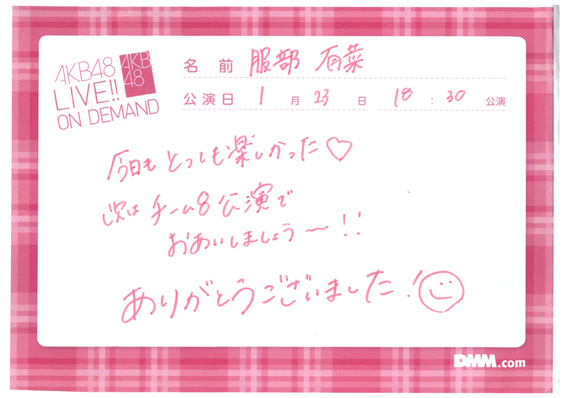 AKB48
LIVE!!
ON DEMAND
AKB
48
名前 服部 有菜
公演日 1月23日 18:30公演
今日もとっても楽しかった♡
次はチーム8公演で
おあいしましょう〜!!
ありがとうございました!
DMM.com